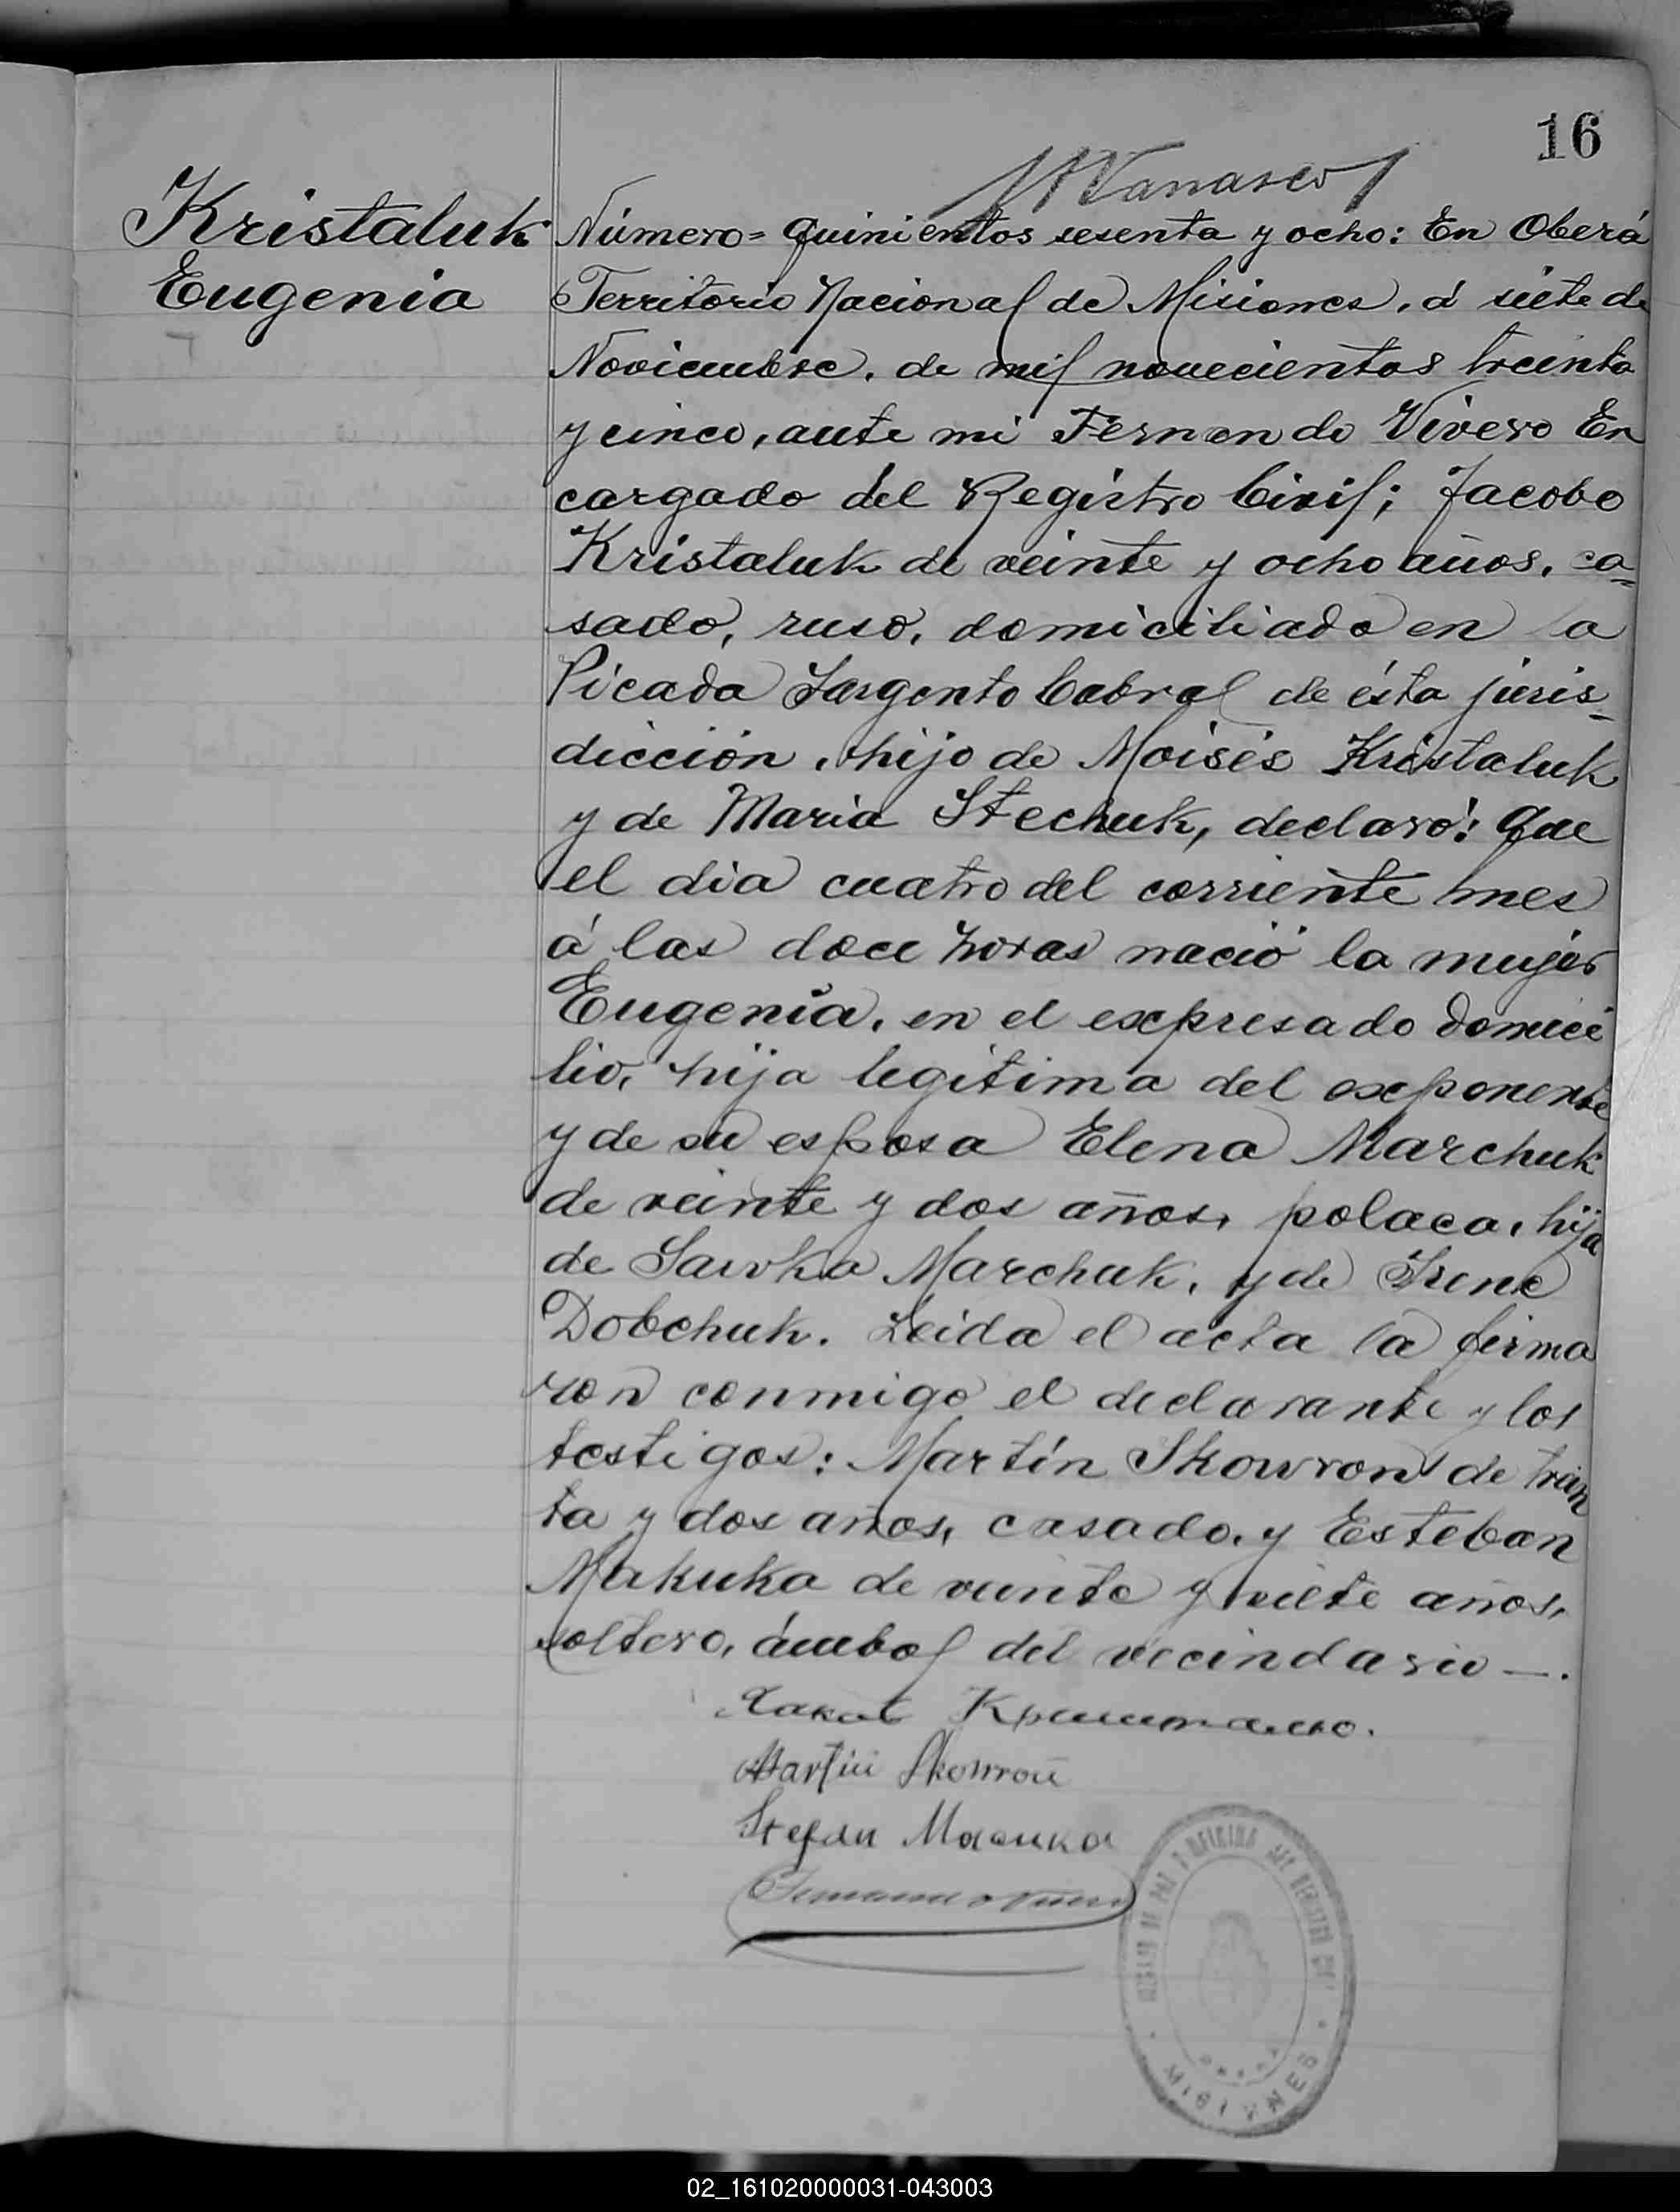 16
Kristaluk
Eugenia
Número = quinientos sesenta y ocho: En Oberá
Territorio Nacional de Misiones, á siete de
Noviembre, de mil novecientos treinta
y cinco, ante mi Fernando Vivero En
cargado del Registro Civil; Jacobo
Kristaluk de veinte y ocho años, ca=
sado, ruso, domiciliado en la
Picada Sargento Cabral de ésta juris-
dicción, hijo de Moisés Kristaluk
y de Maria Stechuk, declaró: Que
el dia cuatro del corriente mes
á las doce horas nació la mujer
Eugenia, en el expresado domici
lio, hija legitima del exponente
y de su esposa Elena Marchuk
de veinte y dos años, polaca, hija
de Sawka Marchuk, y de Irene
Dobchuk. Leida el acta la firma
ron conmigo el declarante y los
testigos: Martín Skowron de trein
ta y dos años, casado, y Esteban
Makuka de veinte y siete años,
soltero, ámbos del vecindario —.
Martin Skowroń
Stefan
MISIONES
02_161020000031-043003